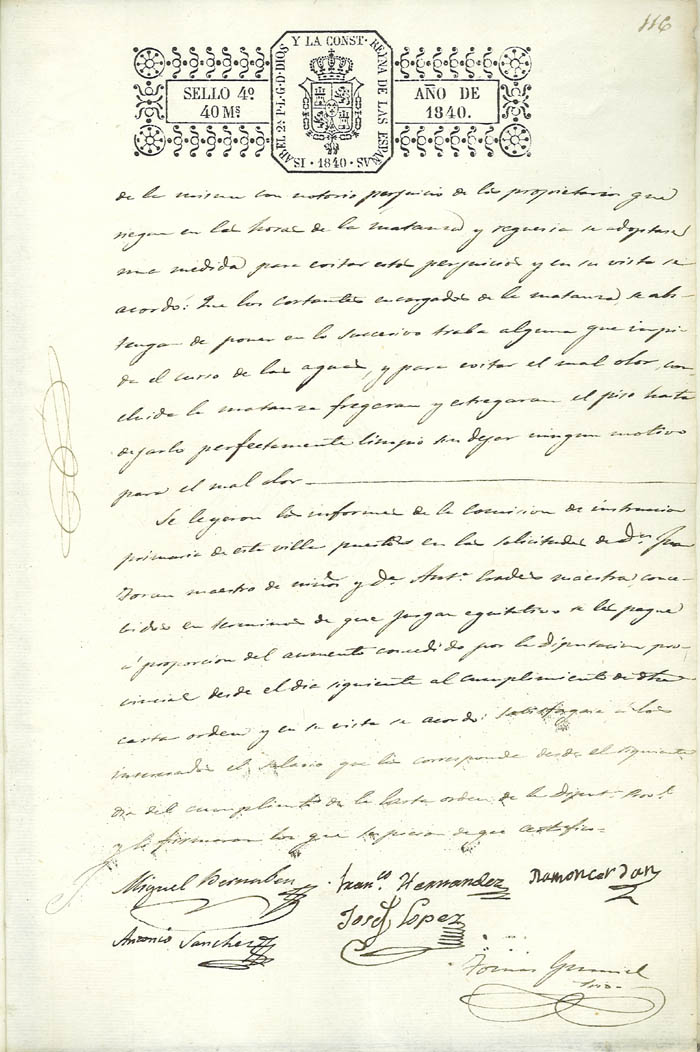 116
ISABEL 2ª P.L.G.D.DIOS Y LA CONST. REYNA DE LAS ESPAÑAS
SELLO 4º
40 Ms
AÑO DE
1840.
· 1840 ·
de la misma con notorio perjuicio de los propietarios que
riegan en las horas de la matanza y requeria se adoptase
una medida para evitar estos perjuicios y en su vista se
acordó: Que los cortantes encargados de la matanza, se abs-
tengan de poner en lo sucesivo traba alguna que impi-
da el curso de las aguas, y para evitar el mal olor, con
cluida la matanza fregaran y estregaran el piso hasta
dejarlo perfectamente limpio sin dejar ningun motivo
para el mal olor
Se leyeron los informes de la Comision de instruccion
primaria de esta villa puestos en las solicitudes de Dn. Juan
maestro de niños y Da. Anta. maestra, conce-
bidos en terminos de que juzgan equitativo se les pague
á proporcion del aumento concedido por la Diputacion pro-
vincial desde el dia siguiente al cumplimiento de dha
carta orden y en su vista se acordó: satisfagase á los
interesados el salario que les corresponde desde el siguiente
dia del cumplimto. de la carta orden de la Diput. Provl.
y lo firmaron los que supieron de que certifico.
Miguel Bernabeu
Franco Hernandez
Ramon Cerdan
Antonio Sanchez
Josef Lopez
Tomas
Srio.